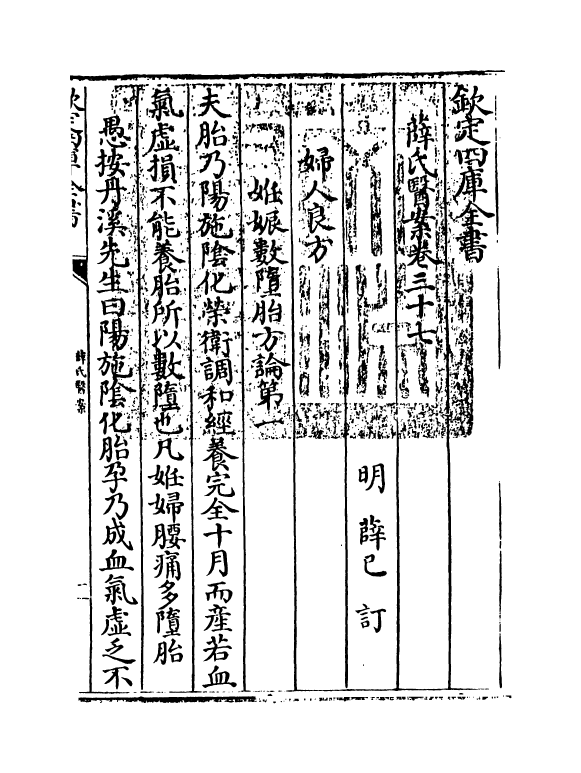 欽定四庫全書
薛氏醫案卷三十七
明 薛己 訂
婦人良方
姙娠數墮胎方論第一
夫胎乃陽施陰化榮衛調和經養完全十月而產若血
氣虛損不能養胎所以數墮也凡姙婦腰痛多墮胎
愚按丹溪先生曰陽施陰化胎孕乃成血氣虛乏不
欽定四庫全書
薛氏醫案